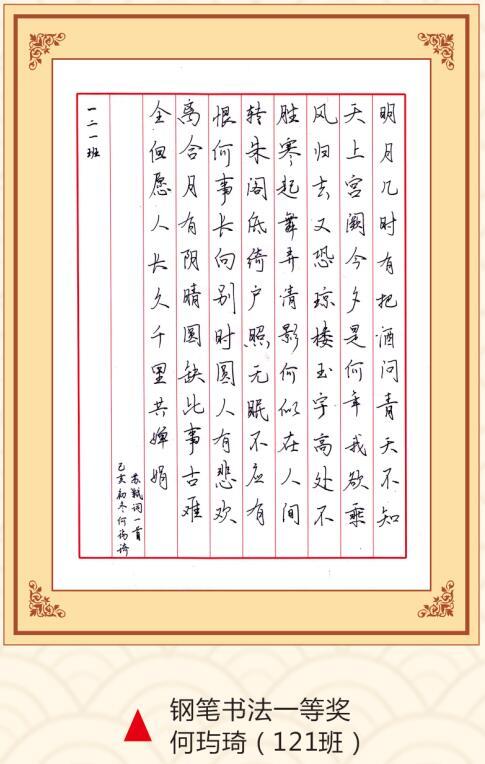 明月几时有把酒问青天不知
天上宫阙今夕是何年我欲乘
风归去又恐琼楼玉宇高处不
胜寒起舞弄清影何似在人间
转朱阁低绮户照无眠不应有
恨何事长向别时圆人有悲欢
离合月有阴晴圆缺此事古难
全但愿人长久千里共婵娟
苏轼词一首
己亥初冬何玙琦
一二一班
钢笔书法一等奖
何玙琦（121班）